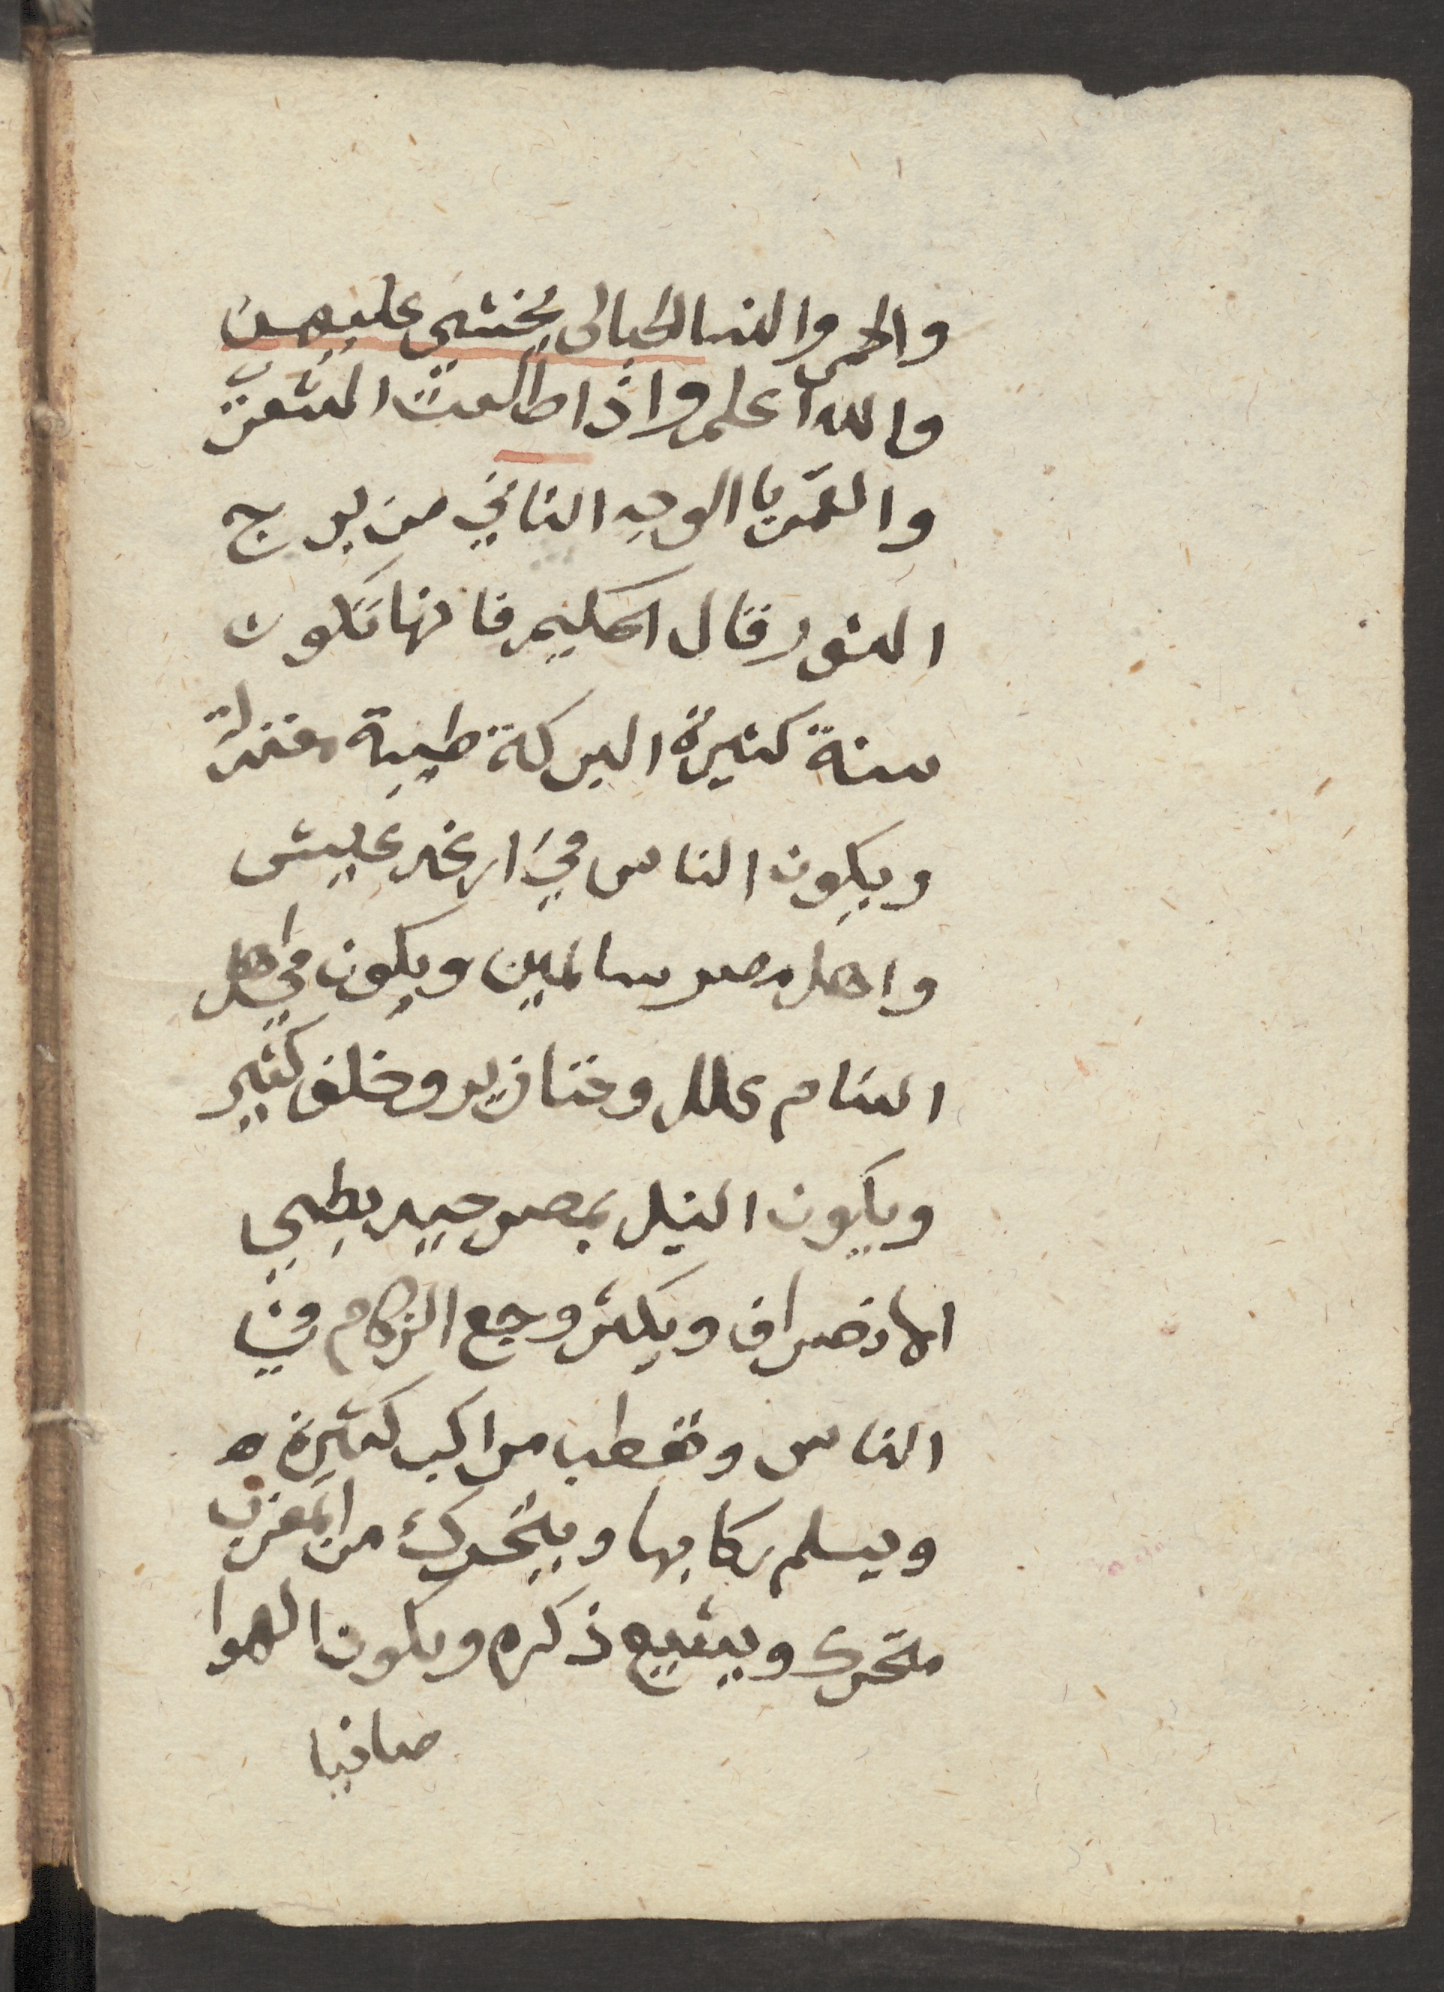 والحمر والنسا الحبالى يخشي عليهن
والله اعلم واذا طلعت الشعرى
والقمر با الوجه الثاني من برج
الثور قال الحكيم فانها تكون
سنة كثيرة البركة طيبة معتدلة
ويكون الناس في ارغد عيش
واهل مصر سالمين ويكون في اهل
الشام علل وخنازير وخلف كثير
ويكون النيل بمصر جيد بطي
الانصراف ويكثر وجع الزكام في
الناس وتعطب مراكب كثيرة ه
ويسلم ركابها ويتحرك من المغرب
متحرك ويشيع ذكره ويكون الهوا
صافيا